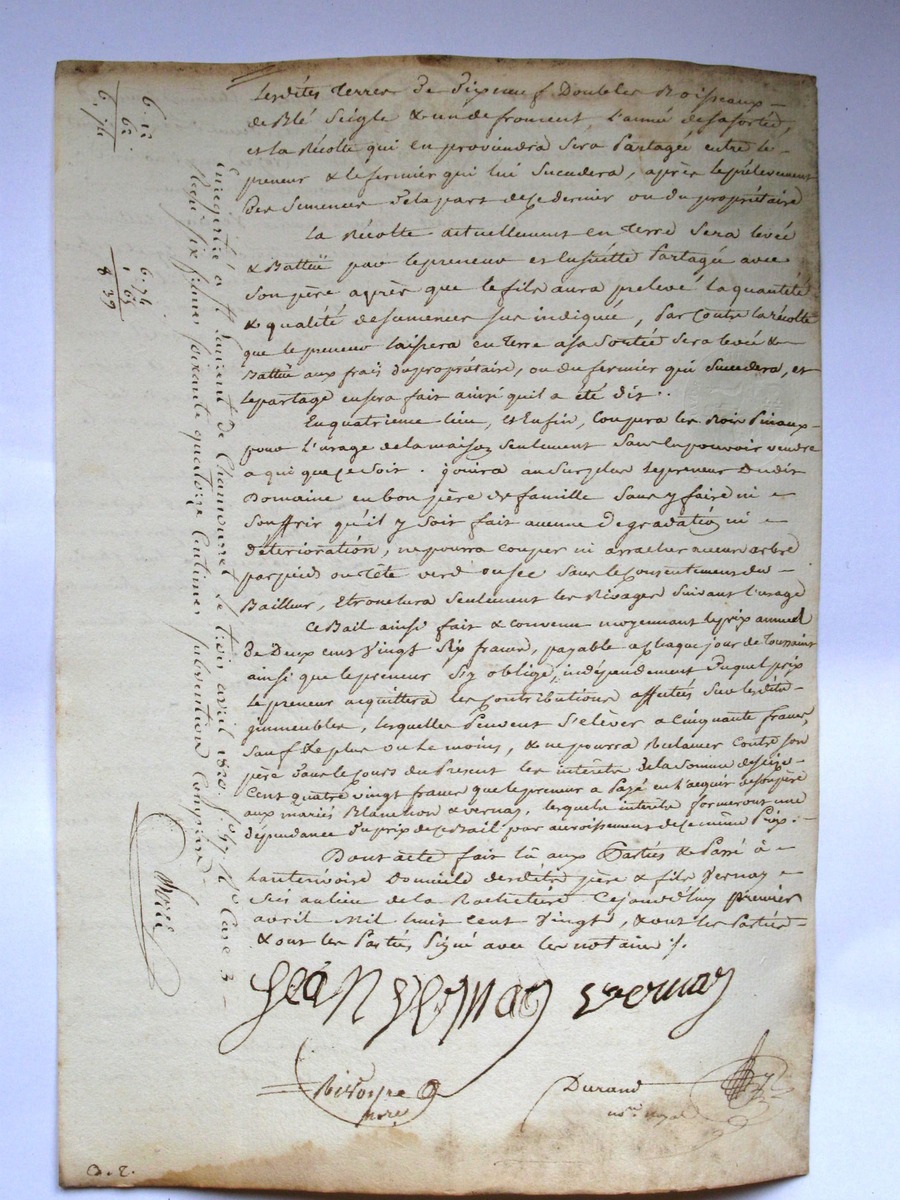 lesdites Terres de dixneuf Doubles Boisseaux
de Blé Seigle & un de froment, l'année de sa sortie,
et la Récolte qui en proviendra Sera Partagée entre le
preneur & le fermier qui lui Succedera, après le prélevement
des Semences de la part de ce dernier ou du propriétaire
La Récolte actuellement en Terre Sera levée
& Battüe par le preneur et Ensuitte Partagée avec
Son père après que le fils aura prelevé la quantité
& qualité de semences sus indiquée, Par Contre la récolte
que le preneur laissera en terre a sa Sortie Sera levée &
Battüe aux frais du propriétaire, ou du fermier qui Succedera, et
le partage en sera fait ainsi qu'il a été dit.
En quatrieme lieu, et Enfin, Coupera les Bois Pinaux
pour l'usage de la maison Seulement Sans En pouvoir vendre
a qui que ce Soit. jouira au Surplus le preneur Dudit
Domaine en bon père de famille Sans y faire ni
Souffrir qu'il y Soit fait aucune Degradation ni
déterioration, ne pourra couper ni arracher aucun arbre
par pied ou Tête verd ou sec Sans le Consentement du
Bailleur, Etronchera Seulement les Rivages Suivant l'usage
Ce Bail ainsi fait & convenu moyennant le prix annuel
de Deux cent Vingt Six francs, payable a chaque jour de Toussaint
ainsi que le preneur S'y oblige, indépendament Duquel prix
le preneur acquittera les Contributions affectées Sur lesdits
immeubles, lesquelles Peuvent S'elever a Cinquante francs,
Sauf le plus ou le moins, & ne pourra Reclamer Contre Son
père dans le Cours du Present les intérêts de la Somme de Seize
Cent quatre vingt francs que le preneur a Payé en l'acquit de son père
aux mariés Blanchon & vernay, lesquels intérêts formeront une
dépendance du prix de ce Bail par accroissement de ce même Prix.
Dont acte fait lû aux Parties & Passé à
hauterivoire Domicile desdits père & fils Vernay
Sis au lieu de la Rochetière Cejourd'huy premier
avril Mil huit Cent Vingt, & ont les Parties
& ont les Parties Signé avec les notaires /.
jean vernay vernay
nore
Durand
nore royal
Enregistré a St Laurent de Chamousset le trois avril 1820. fo 97 Vo Case 3
Reçu six francs soixante quatorze Centimes subvention Comprise
6. 12
62
6. 74
6. 74
1 65
8 39